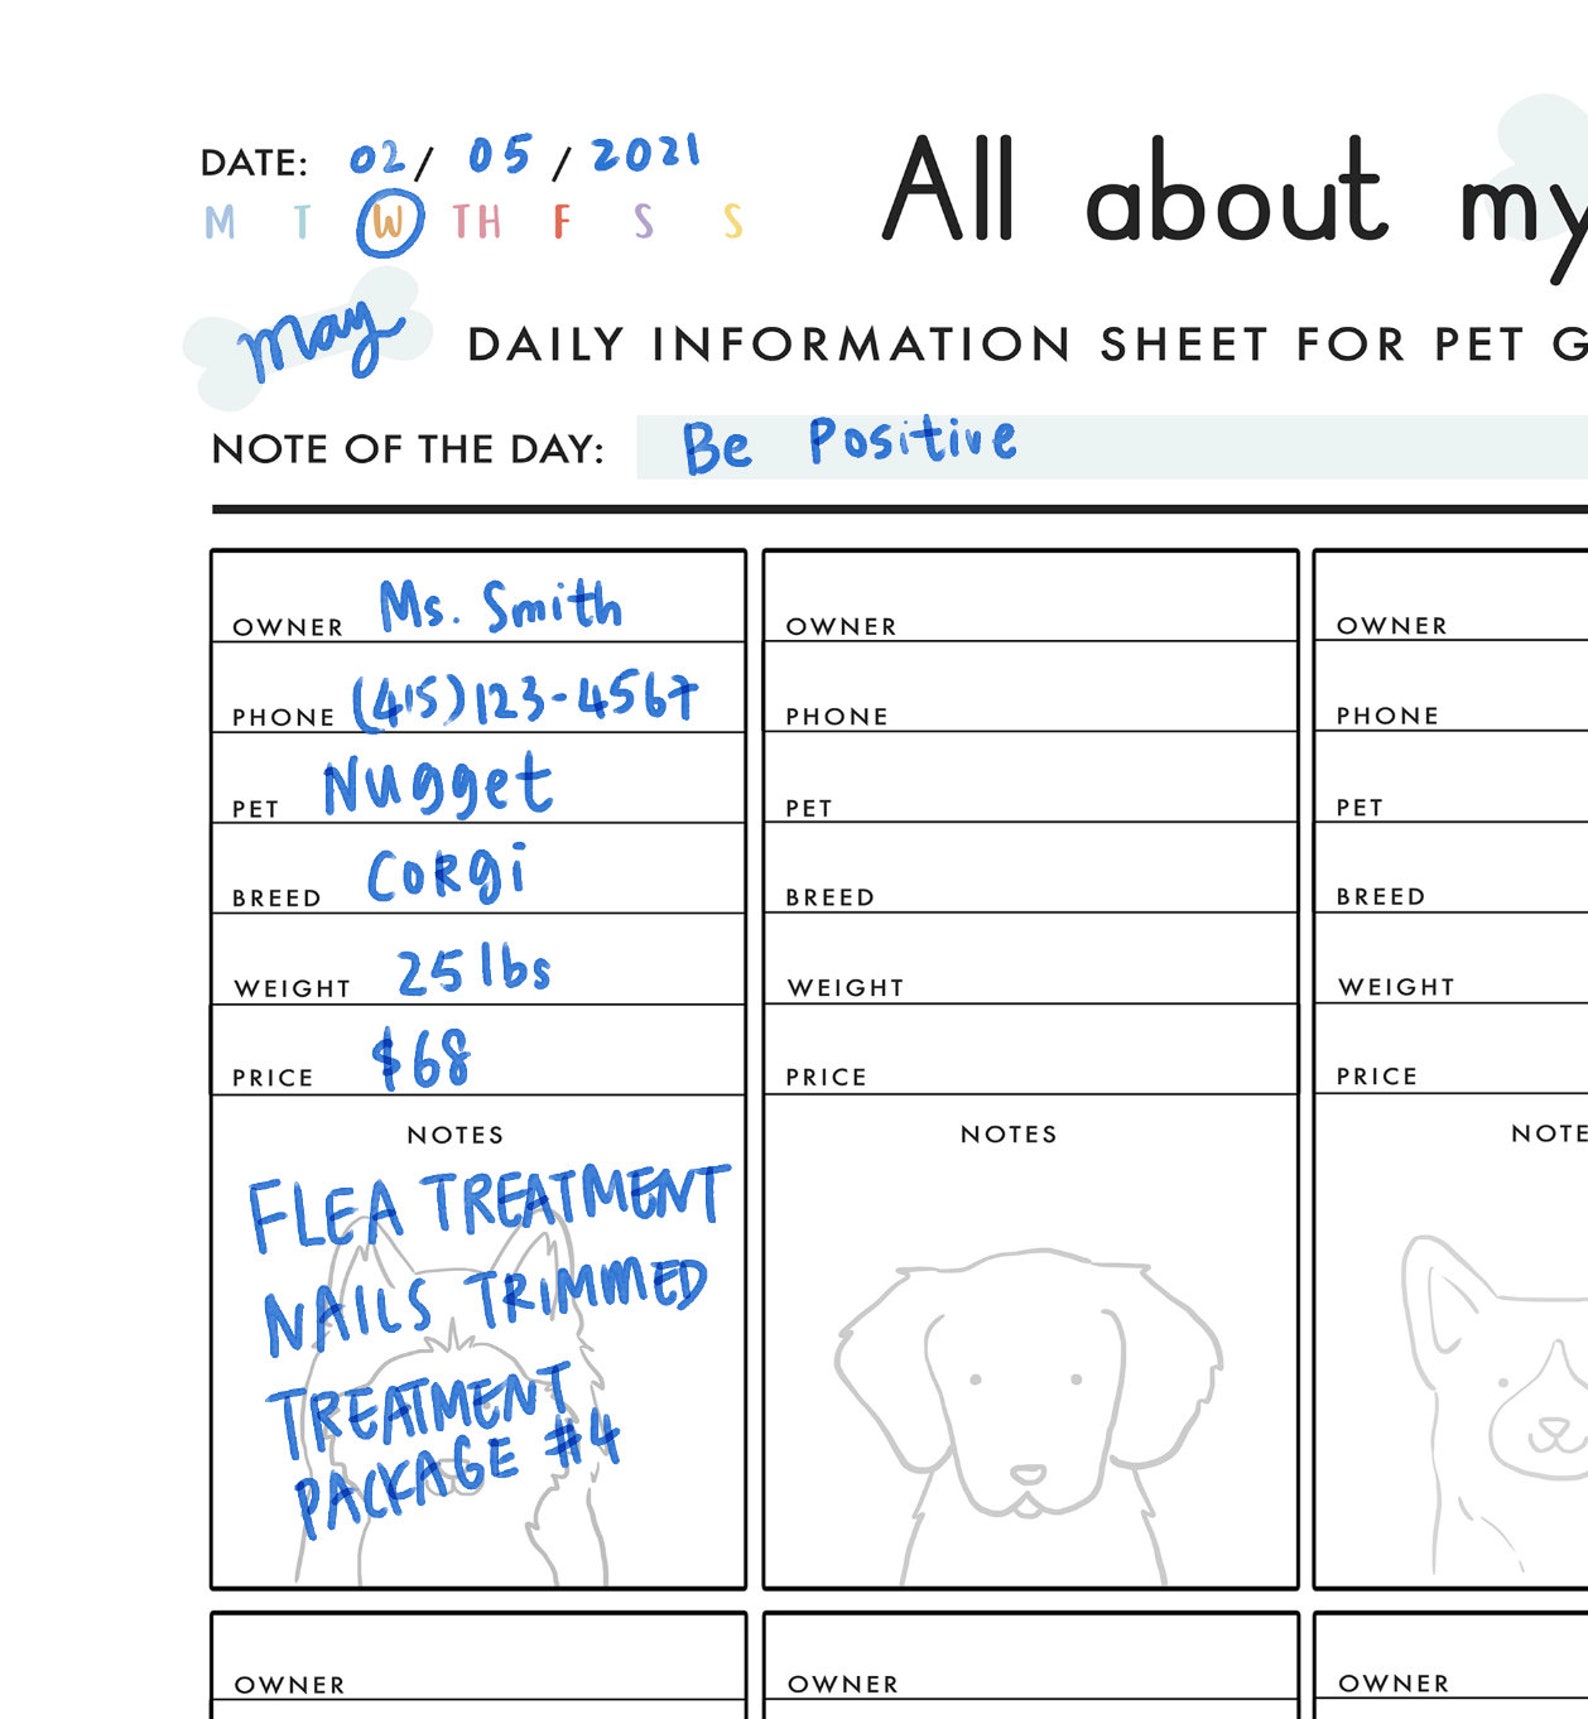 DATE: 02 / 05 / 2021
M T W TH F S S
All about my
May
DAILY INFORMATION SHEET FOR PET
NOTE OF THE DAY: Be Positive
OWNER Ms. Smith
PHONE (415) 123-4567
PET Nugget
BREED Corgi
WEIGHT 25 lbs
PRICE $68
NOTES
FLEA TREATMENT
NAILS TRIMMED
TREATMENT
PACKAGE #4
OWNER
PHONE
PET
BREED
WEIGHT
PRICE
NOTES
OWNER
PHONE
PET
BREED
WEIGHT
PRICE
OWNER
OWNER
OWNER